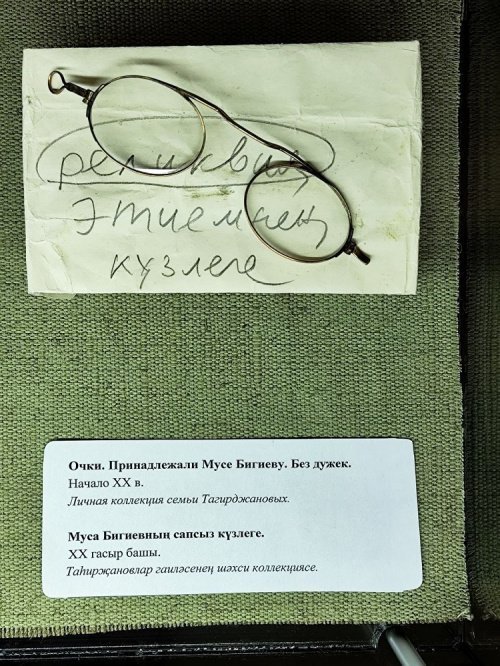 реликвия
Әтиемнең
күзлеге
Очки. Принадлежали Мусе Бигиеву. Без дужек.
Начало XX в.
Личная коллекция семьи Тагирджановых.
Муса Бигиевның сапсыз күзлеге.
XX гасыр башы.
Таһирҗановлар гаиләсенең шәхси коллекциясе.